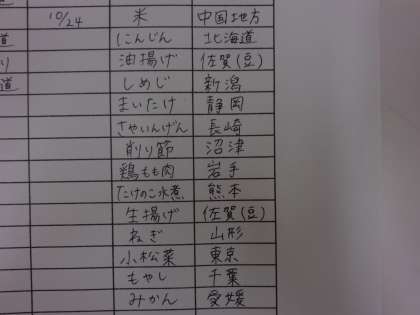 10/24 米 中国地方
道 にんじん 北海道
り 油揚げ 佐賀(豆)
道 しめじ 新潟
まいたけ 静岡
さやいんげん 長崎
削り節 沼津
鶏もも肉 岩手
たけのこ水煮 熊本
生揚げ 佐賀(豆)
ねぎ 山形
小松菜 東京
もやし 千葉
みかん 愛媛